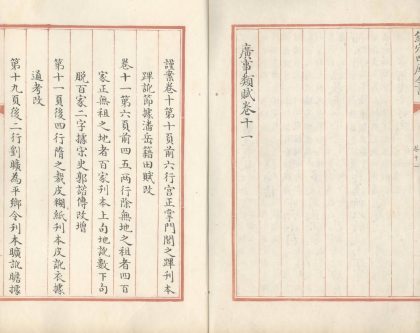 廣事類賦卷十一
謹案卷十第十頁前六行宮正掌門閤之蹕刊本
蹕訛節據潘岳籍田賦改
卷十一第六頁前四五兩行除無地之租者四百
家正無租之地者百家刊本上句地訛數下句
脫百家二字據宋史郭諮傳改增
第十一頁後四行隋之裁皮糊紙刊本皮訛衣據
通考改
第十九頁後二行劉曠為平鄉令刊本曠訛瞻據